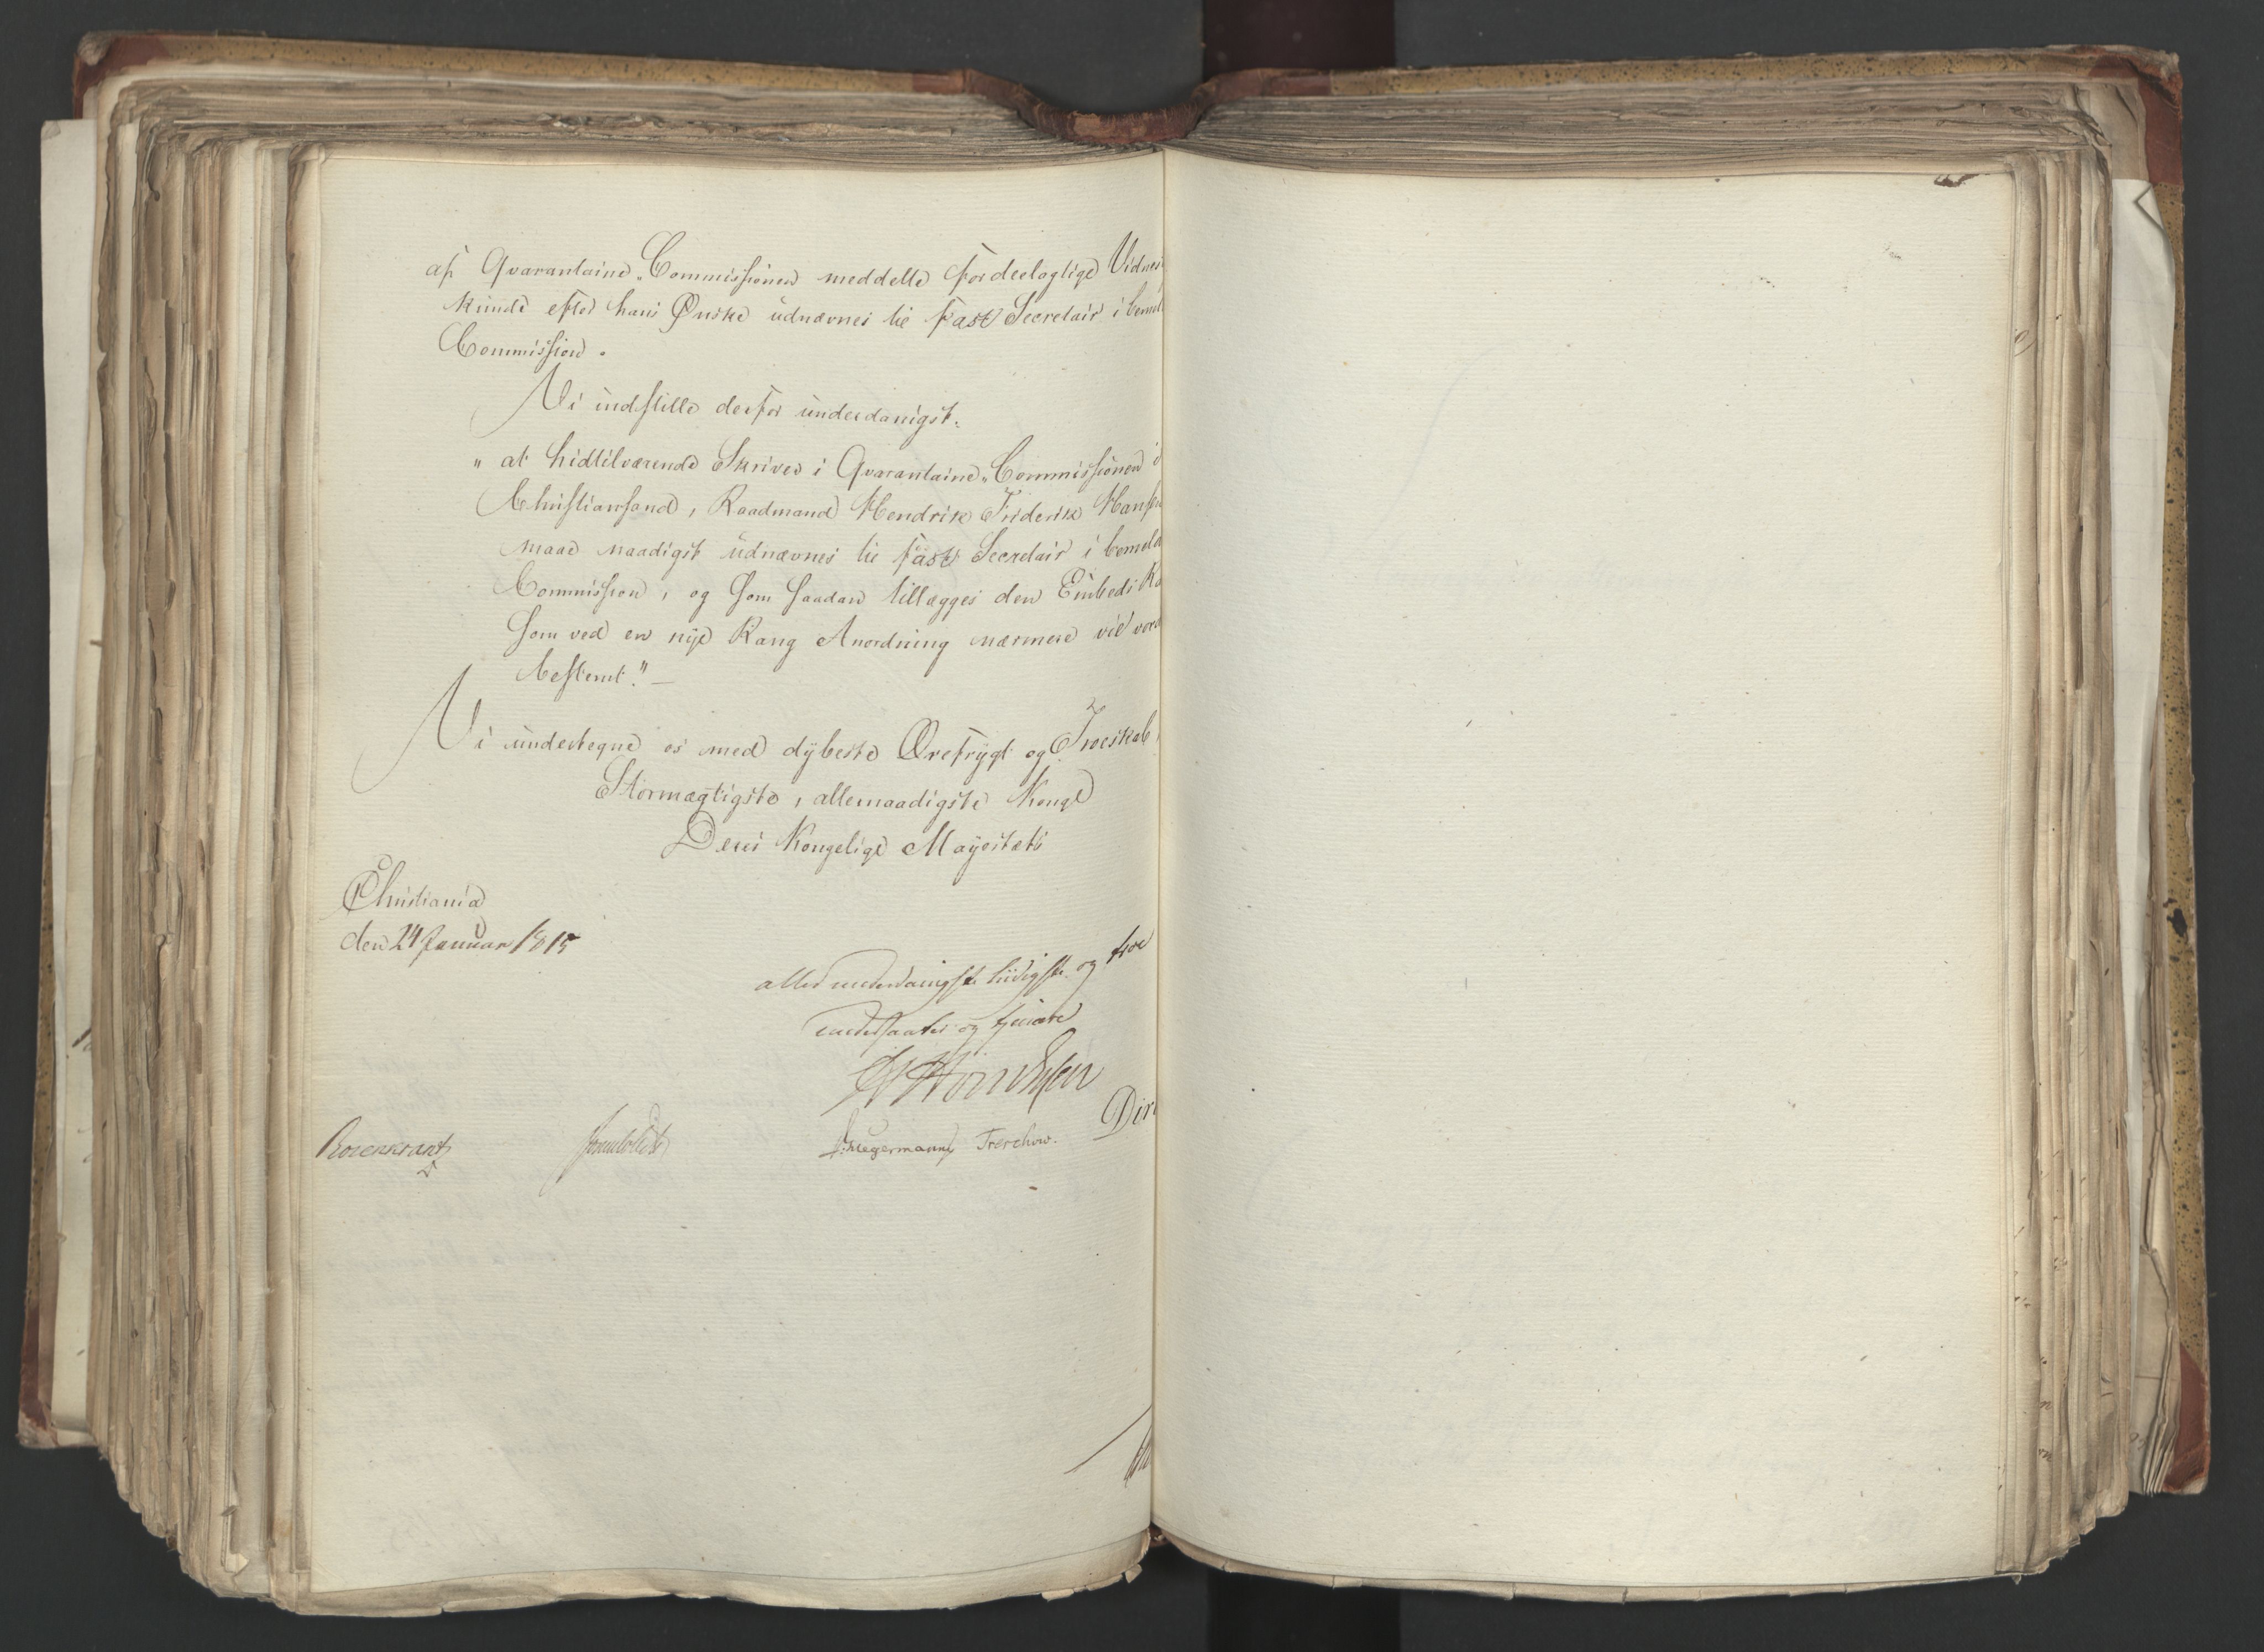 af Qvarantaine-Commissionen meddelte fordeelagtige Vidnes
kunde efter hans Ønske udnævnes til fast Secretair i bemel
Commission.
Vi indstille derfor underdanigst:
"at hidtilværende Skriver i Qvarantaine-Commissionen i
Christiansand, Raadmand Hendrik Friderik Hansen
maae naadigst udnævnes til fast Secretair i bemeld
Commission, og som saadan tillægges den Embeds Ra
som ved en nye Rang Anordning nærmere vil vord
bestemt." —
Vi undertegne os med dybeste Ærefrygt og Troeskab,
Stormægtigste, allernaadigste Konge
Deres Kongelige Mayestæts
Christiania
den 24 Januar 1815
allerunderdanigste lydigste og troe
undersaatter og tjenere
Dir
Rosenkrantz Sommerhielm Hegermann Treschow.